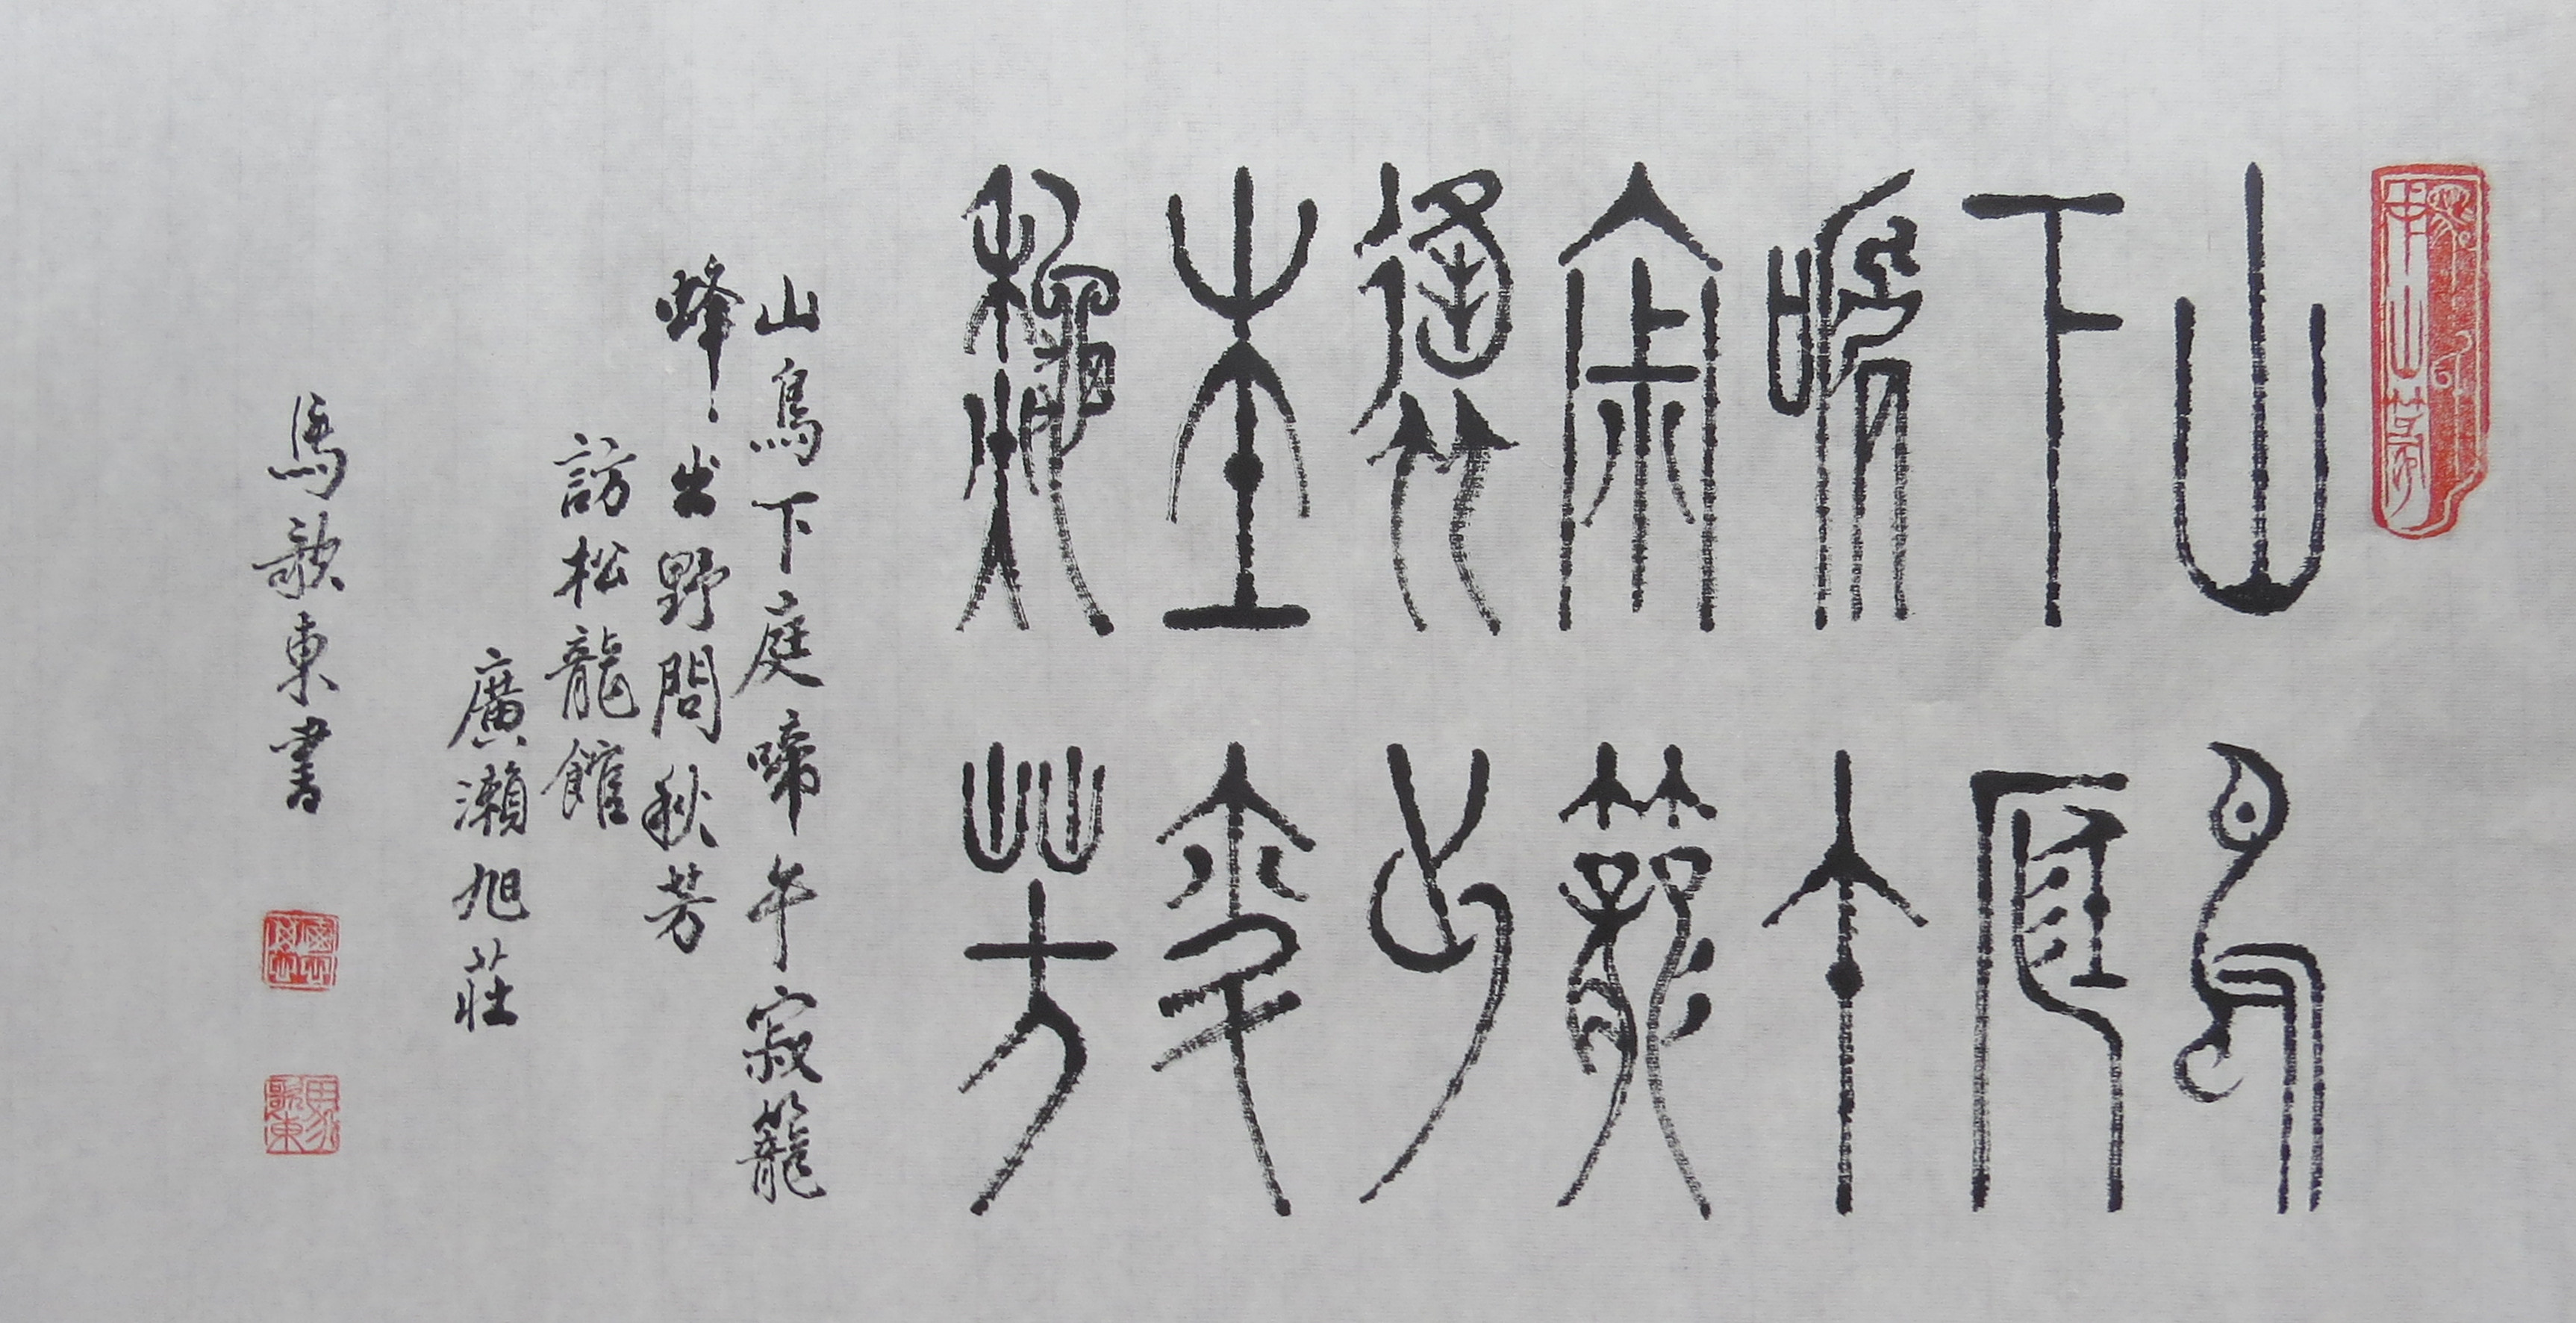 山鳥
下庭
啼午
寂籠
蜂出
野問
秋芳
山鳥下庭啼午寂籠
蜂出野問秋芳
訪松龍館
廣瀨旭莊
馬歌東書
馬歌東